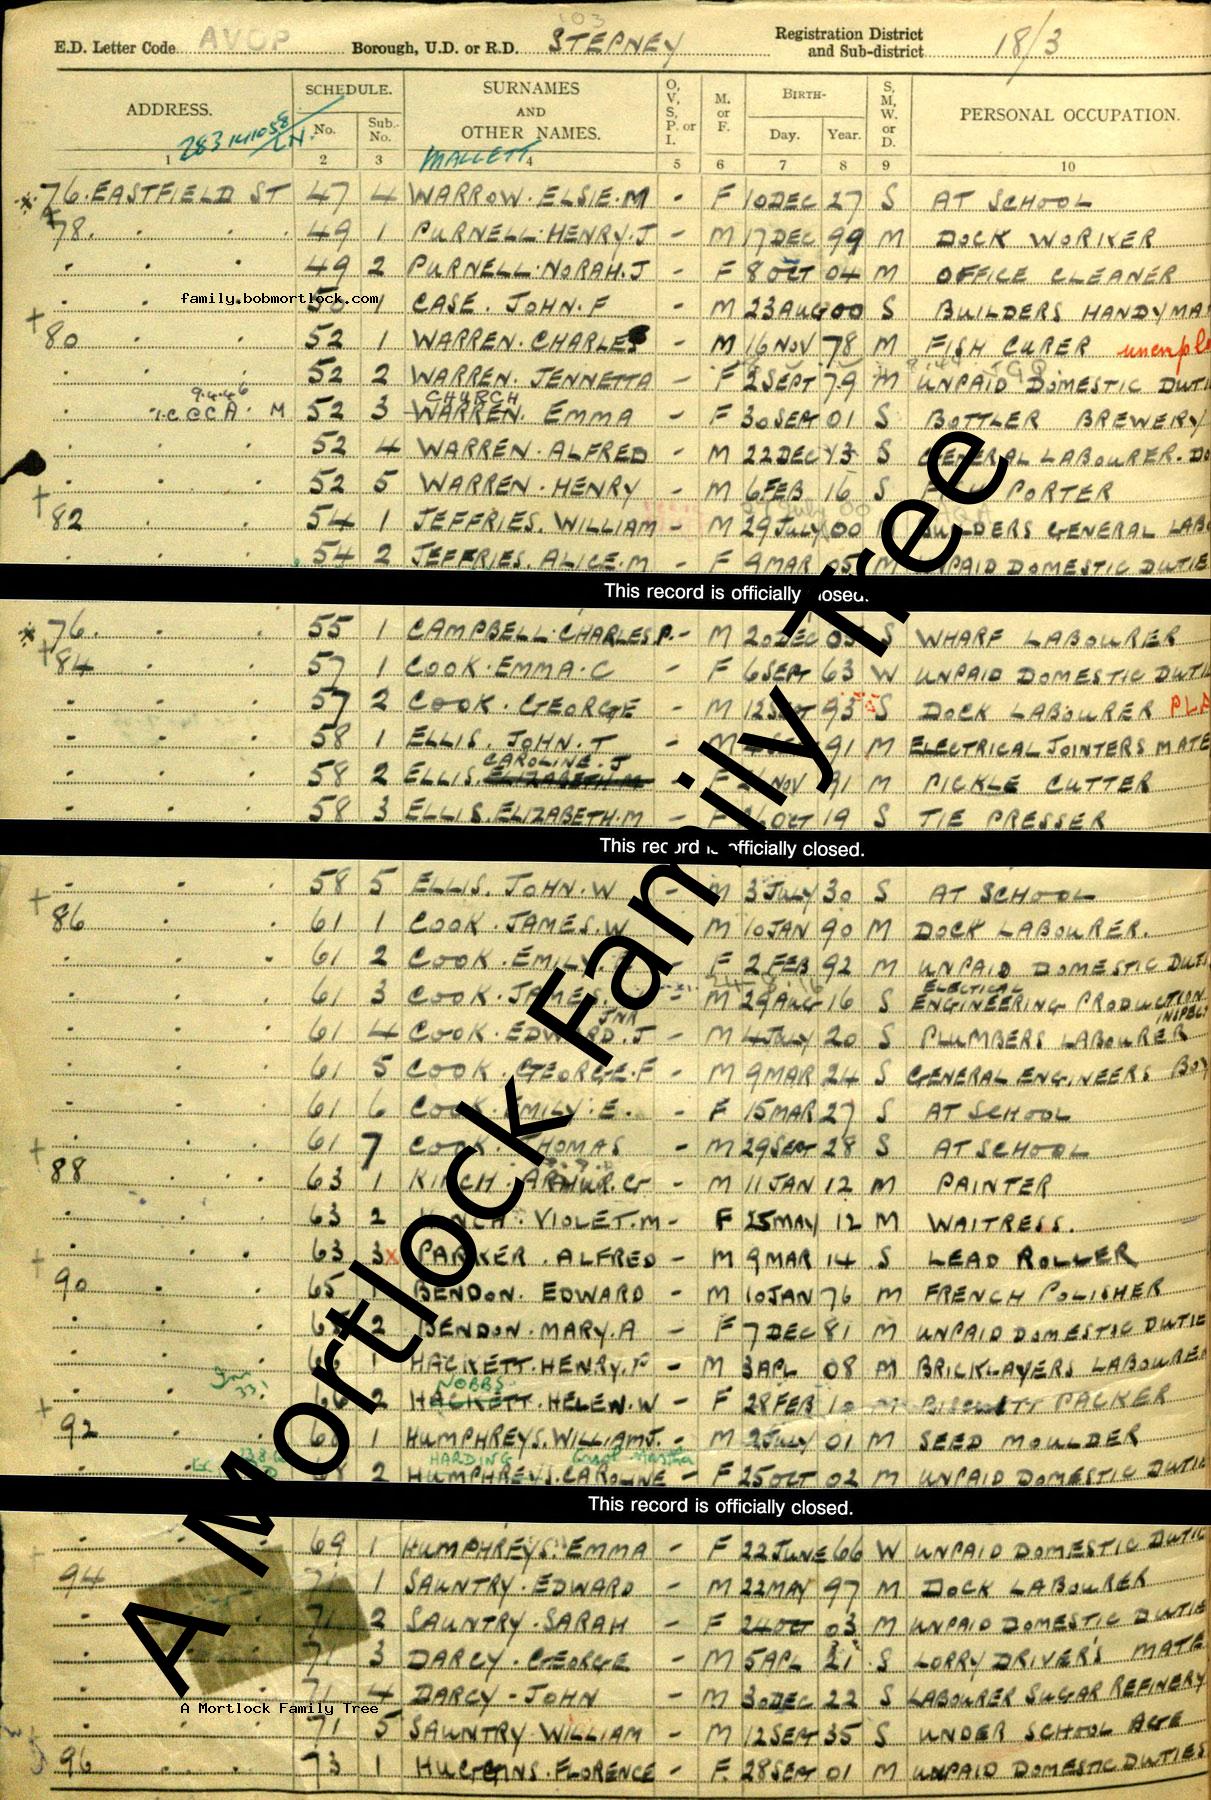 E.D. Letter Code AVOP Borough, U.D. or R.D. STEPNEY Registration District and Sub-district 18/3
ADDRESS. SCHEDULE. No. Sub. No. SURNAMES AND OTHER NAMES. O, V, S, P. or I. M. or F. BIRTH- Day. Year. S, M, W. or D. PERSONAL OCCUPATION.
MALLETT
1 2 3 4 5 6 7 8 9 10
76. EASTFIELD ST 47 4 WARROW. ELSIE. M - F 10 DEC 27 S AT SCHOOL
78. 49 1 PURNELL. HENRY. J - M 17 DEC 99 M DOCK WORKER
49 2 PURNELL. NORAH. J - F 8 OCT 04 M OFFICE CLEANER
family.bobmortlock.com
50 1 CASE. JOHN. F - M 23 AUG 00 S BUILDERS HANDYMA
80 52 1 WARREN. CHARLES - M 16 NOV 78 M FISH CURER unempl
52 2 WARREN. JENNETTA - F 2 SEPT 79 M UNPAID DOMESTIC DUTI
CHURCH
52 3 WARREN. EMMA - F 30 SEP 01 S BOTTLER BREWERY
52 4 WARREN. ALFRED - M 22 DEC 13 S GENERAL LABOURER. DO
52 5 WARREN. HENRY - M 6 FEB 16 S PORTER
82 54 1 JEFFRIES. WILLIAM - M 29 JULY 00 M BUILDERS GENERAL LABO
54 2 JEFFRIES. ALICE. M - F 9 MAR 05 M UNPAID DOMESTIC DUTIE
This record is officially closed.
76. 55 1 CAMPBELL. CHARLES P. - M 20 DEC 05 S WHARF LABOURER
84 57 1 COOK. EMMA. C - F 6 SEP 63 W UNPAID DOMESTIC DUTI
57 2 COOK. GEORGE - M 12 SEP 93 S DOCK LABOURER PLA
58 1 ELLIS. JOHN. T - M 91 M ELECTRICAL JOINTERS MATE
CAROLINE. J
58 2 ELLIS. ELIZABETH. M - F NOV 91 M PICKLE CUTTER
58 3 ELLIS. ELIZABETH. M - F 26 OCT 19 S TIE PRESSER
This record is officially closed.
58 5 ELLIS. JOHN. W - M 3 JULY 30 S AT SCHOOL
86 61 1 COOK. JAMES. W - M 10 JAN 90 M DOCK LABOURER.
61 2 COOK. EMILY. - F 2 FEB 92 M UNPAID DOMESTIC DUTI
ELECTICAL
61 3 COOK. JAMES. JNR - M 29 AUG 16 S ENGINEERING PRODUCTION INSPEC
61 4 COOK. EDWARD. J - M 4 JULY 20 S PLUMBERS LABOURER
61 5 COOK. GEORGE. F - M 9 MAR 24 S GENERAL ENGINEERS BOY
61 6 COOK. EMILY. E. - F 15 MAR 27 S AT SCHOOL
61 7 COOK. THOMAS - M 29 SEP 28 S AT SCHOOL
88 63 1 KINCH. ARTHUR. G - M 11 JAN 12 M PAINTER
63 2 KINCH. VIOLET. M - F 25 MAY 12 M WAITRESS.
63 3x PARKER. ALFRED - M 9 MAR 14 S LEAD ROLLER
90 65 1 BENDON. EDWARD - M 10 JAN 76 M FRENCH POLISHER
65 2 BENDON. MARY. A - F 7 DEC 81 M UNPAID DOMESTIC DUTIE
66 1 HACKETT. HENRY. P - M 3 APL 08 M BRICKLAYERS LABOURER
NOBBS
66 2 HACKETT. HELEN. W - F 28 FEB 10 M BISCUIT PACKER
92 68 1 HUMPHREYS. WILLIAM J. - M 2 JULY 01 M SEED MOULDER
HARDING
68 2 HUMPHREYS. CAROLINE - F 25 OCT 02 M UNPAID DOMESTIC DUTIE
This record is officially closed.
69 1 HUMPHREYS. EMMA - F 22 JUNE 66 W UNPAID DOMESTIC DUTIE
94 71 1 SAUNTRY. EDWARD - M 22 MAY 97 M DOCK LABOURER
71 2 SAUNTRY. SARAH - F 24 OCT 03 M UNPAID DOMESTIC DUTIE
71 3 DARCY. GEORGE - M 5 APL 21 S LORRY DRIVER'S MATE
71 4 DARCY - JOHN - M 30 DEC 22 S LABOURER SUGAR REFINERY
A Mortlock Family Tree
71 5 SAUNTRY. WILLIAM - M 12 SEP 35 S UNDER SCHOOL AGE
96 73 1 HUGGINS. FLORENCE - F 28 SEP 01 M UNPAID DOMESTIC DUTIES
A Mortlock Family Tree